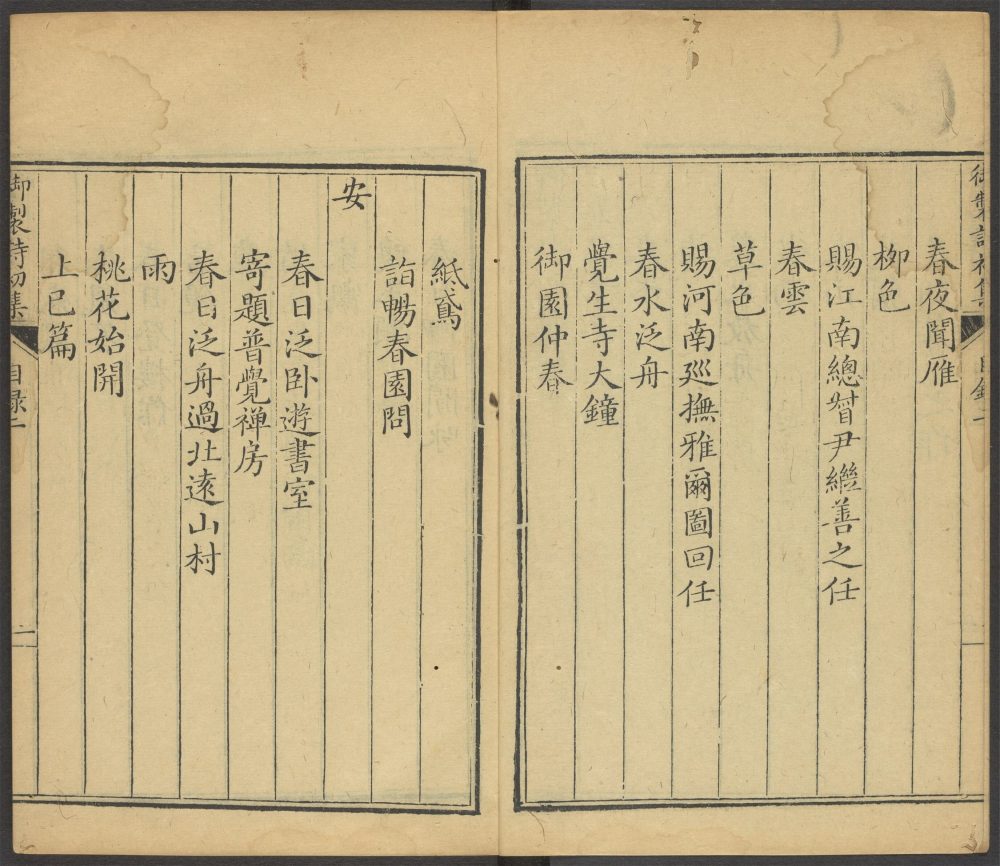 御製詩初集 目錄二
春夜聞雁
栁色
賜江南總督尹繼善之任
春雲
草色
賜河南廵撫雅爾圖回任
春水泛舟
覺生寺大鐘
御園仲春
紙鳶
詣暢春園問
安
春日泛卧遊書室
寄題普覺禅房
春日泛舟過北遠山村
雨
桃花始開
上巳篇
御製詩初集 目錄二 一